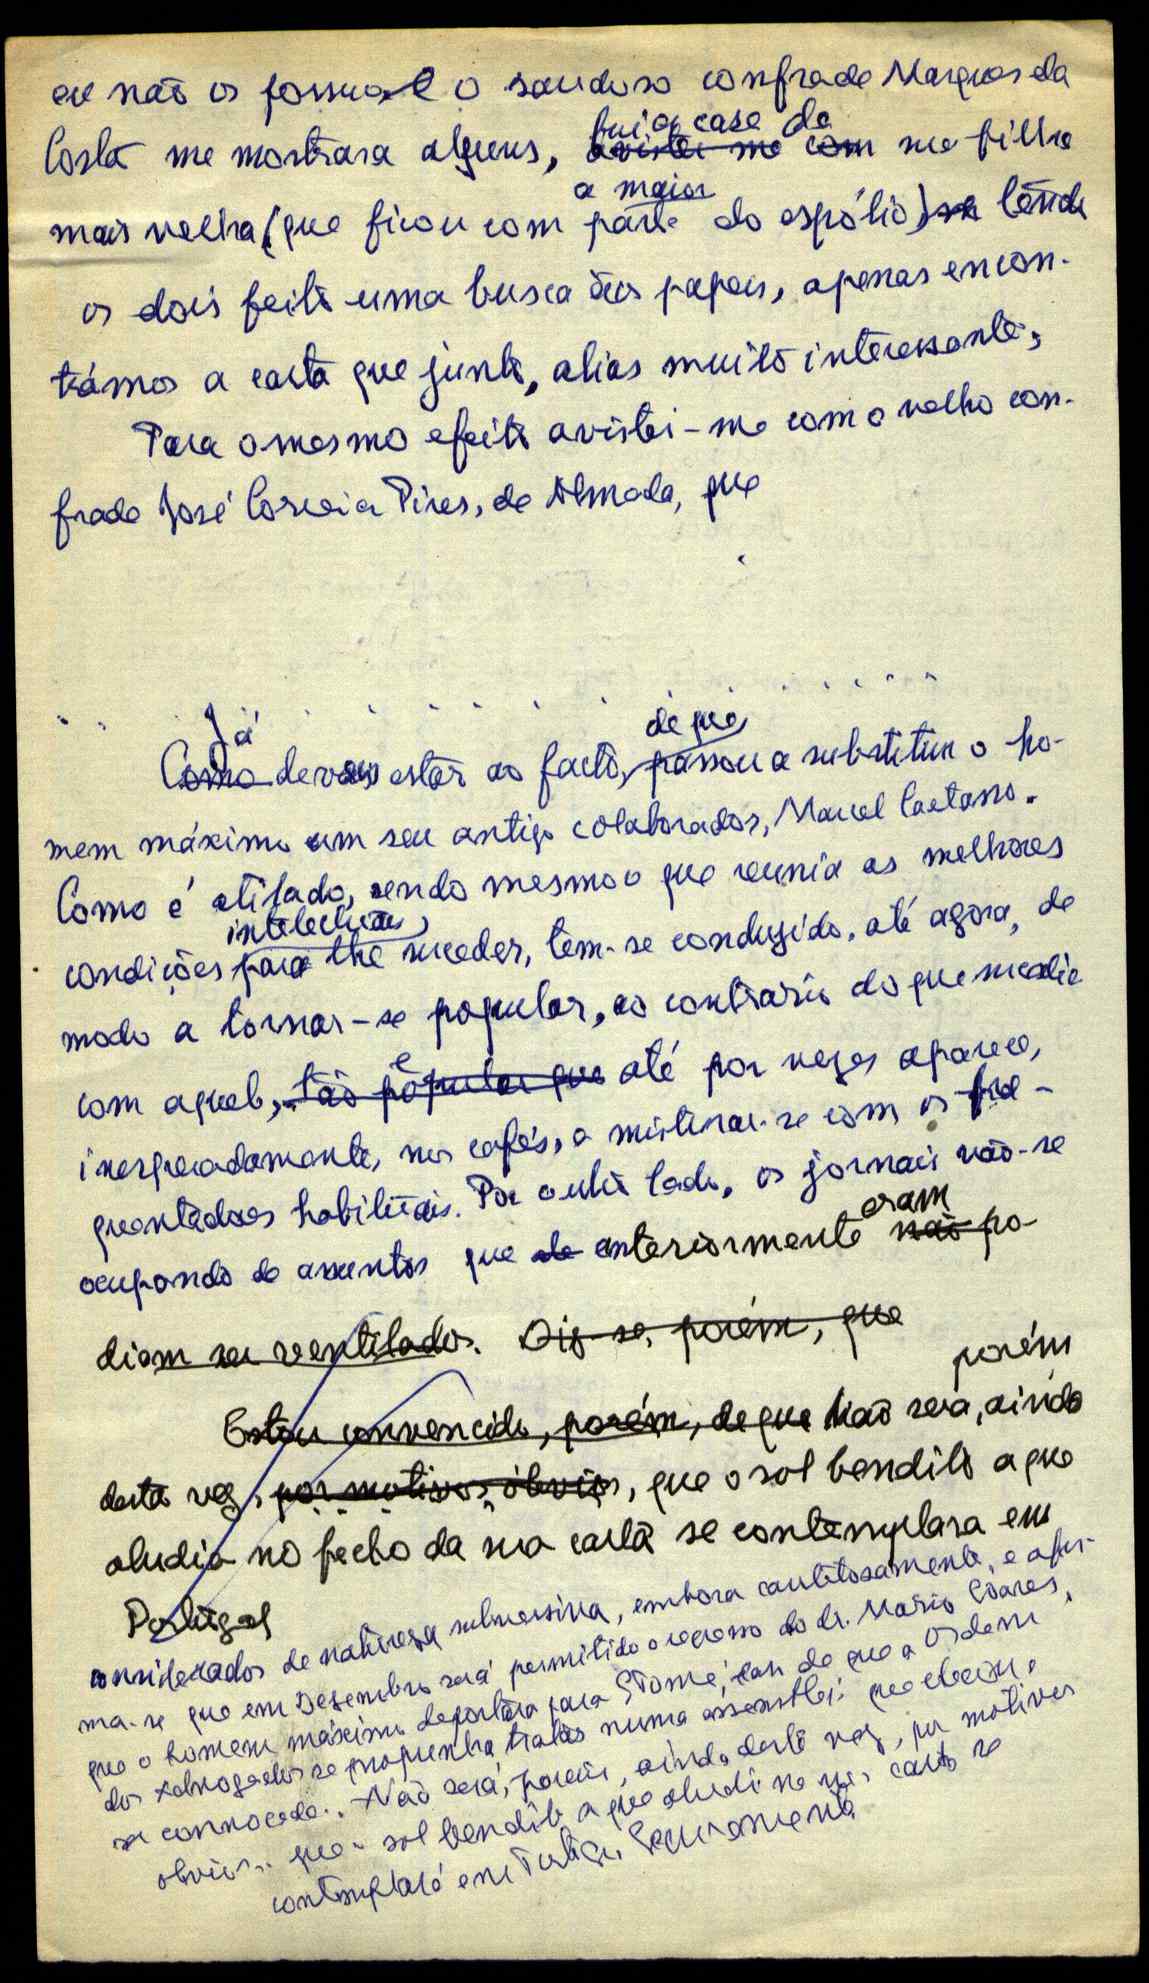 eu não os possua e o saudoso confrade Marques da
Costa me mostrara alguns, fui a casa da
avistei-me com sua filha
a maior
mais velha (que ficou com parte do espólio) tendo
os dois feito uma busca aos papeis, apenas encon-
trámos a carta que junto, alias muito interessante;
Para o mesmo efeito avistei-me com o velho con-
frade José Correia Pires, de Almada, que
Já de que
Como deveis estar ao facto, passou a substituir o ho-
mem máximo um seu antigo colaborador, Marcel Caetano.
Como é atilado, sendo mesmo o que reunia as melhores
intelectuais
condições para lhe suceder, tem-se conduzido, até agora, de
modo a tornar-se popular, ao contrário do que sucedia
com aquele, tão popular que e até por vezes aparece,
inesperadamente, nos cafés, a misturar-se com os fre-
quentadores habituais. Por outro lado, os jornais vão-se
eram
ocupando de assuntos que de anteriormente não po-
diam ser ventilados. Diz-se, porém, que
porém
Estou convencido, porém, de que Não será, ainda
desta vez, por motivos óbvios, que o sol bendito a que
aludia no fecho da sua carta se contemplara em
Portugal
considerados de natureza subversiva, embora cautelosamente, e afir-
ma-se que em Dezembro será permitido o regresso do dr. Mário Soares,
que o homem máximo deportara para S Tomé, de que a Ordem
dos Advogados se propunha tratar numa assembleia que
se convocada. Não será, porém, ainda desta vez, por motivos
obvios, que o sol bendito a que aludi na carta se
contemplará em Portugal